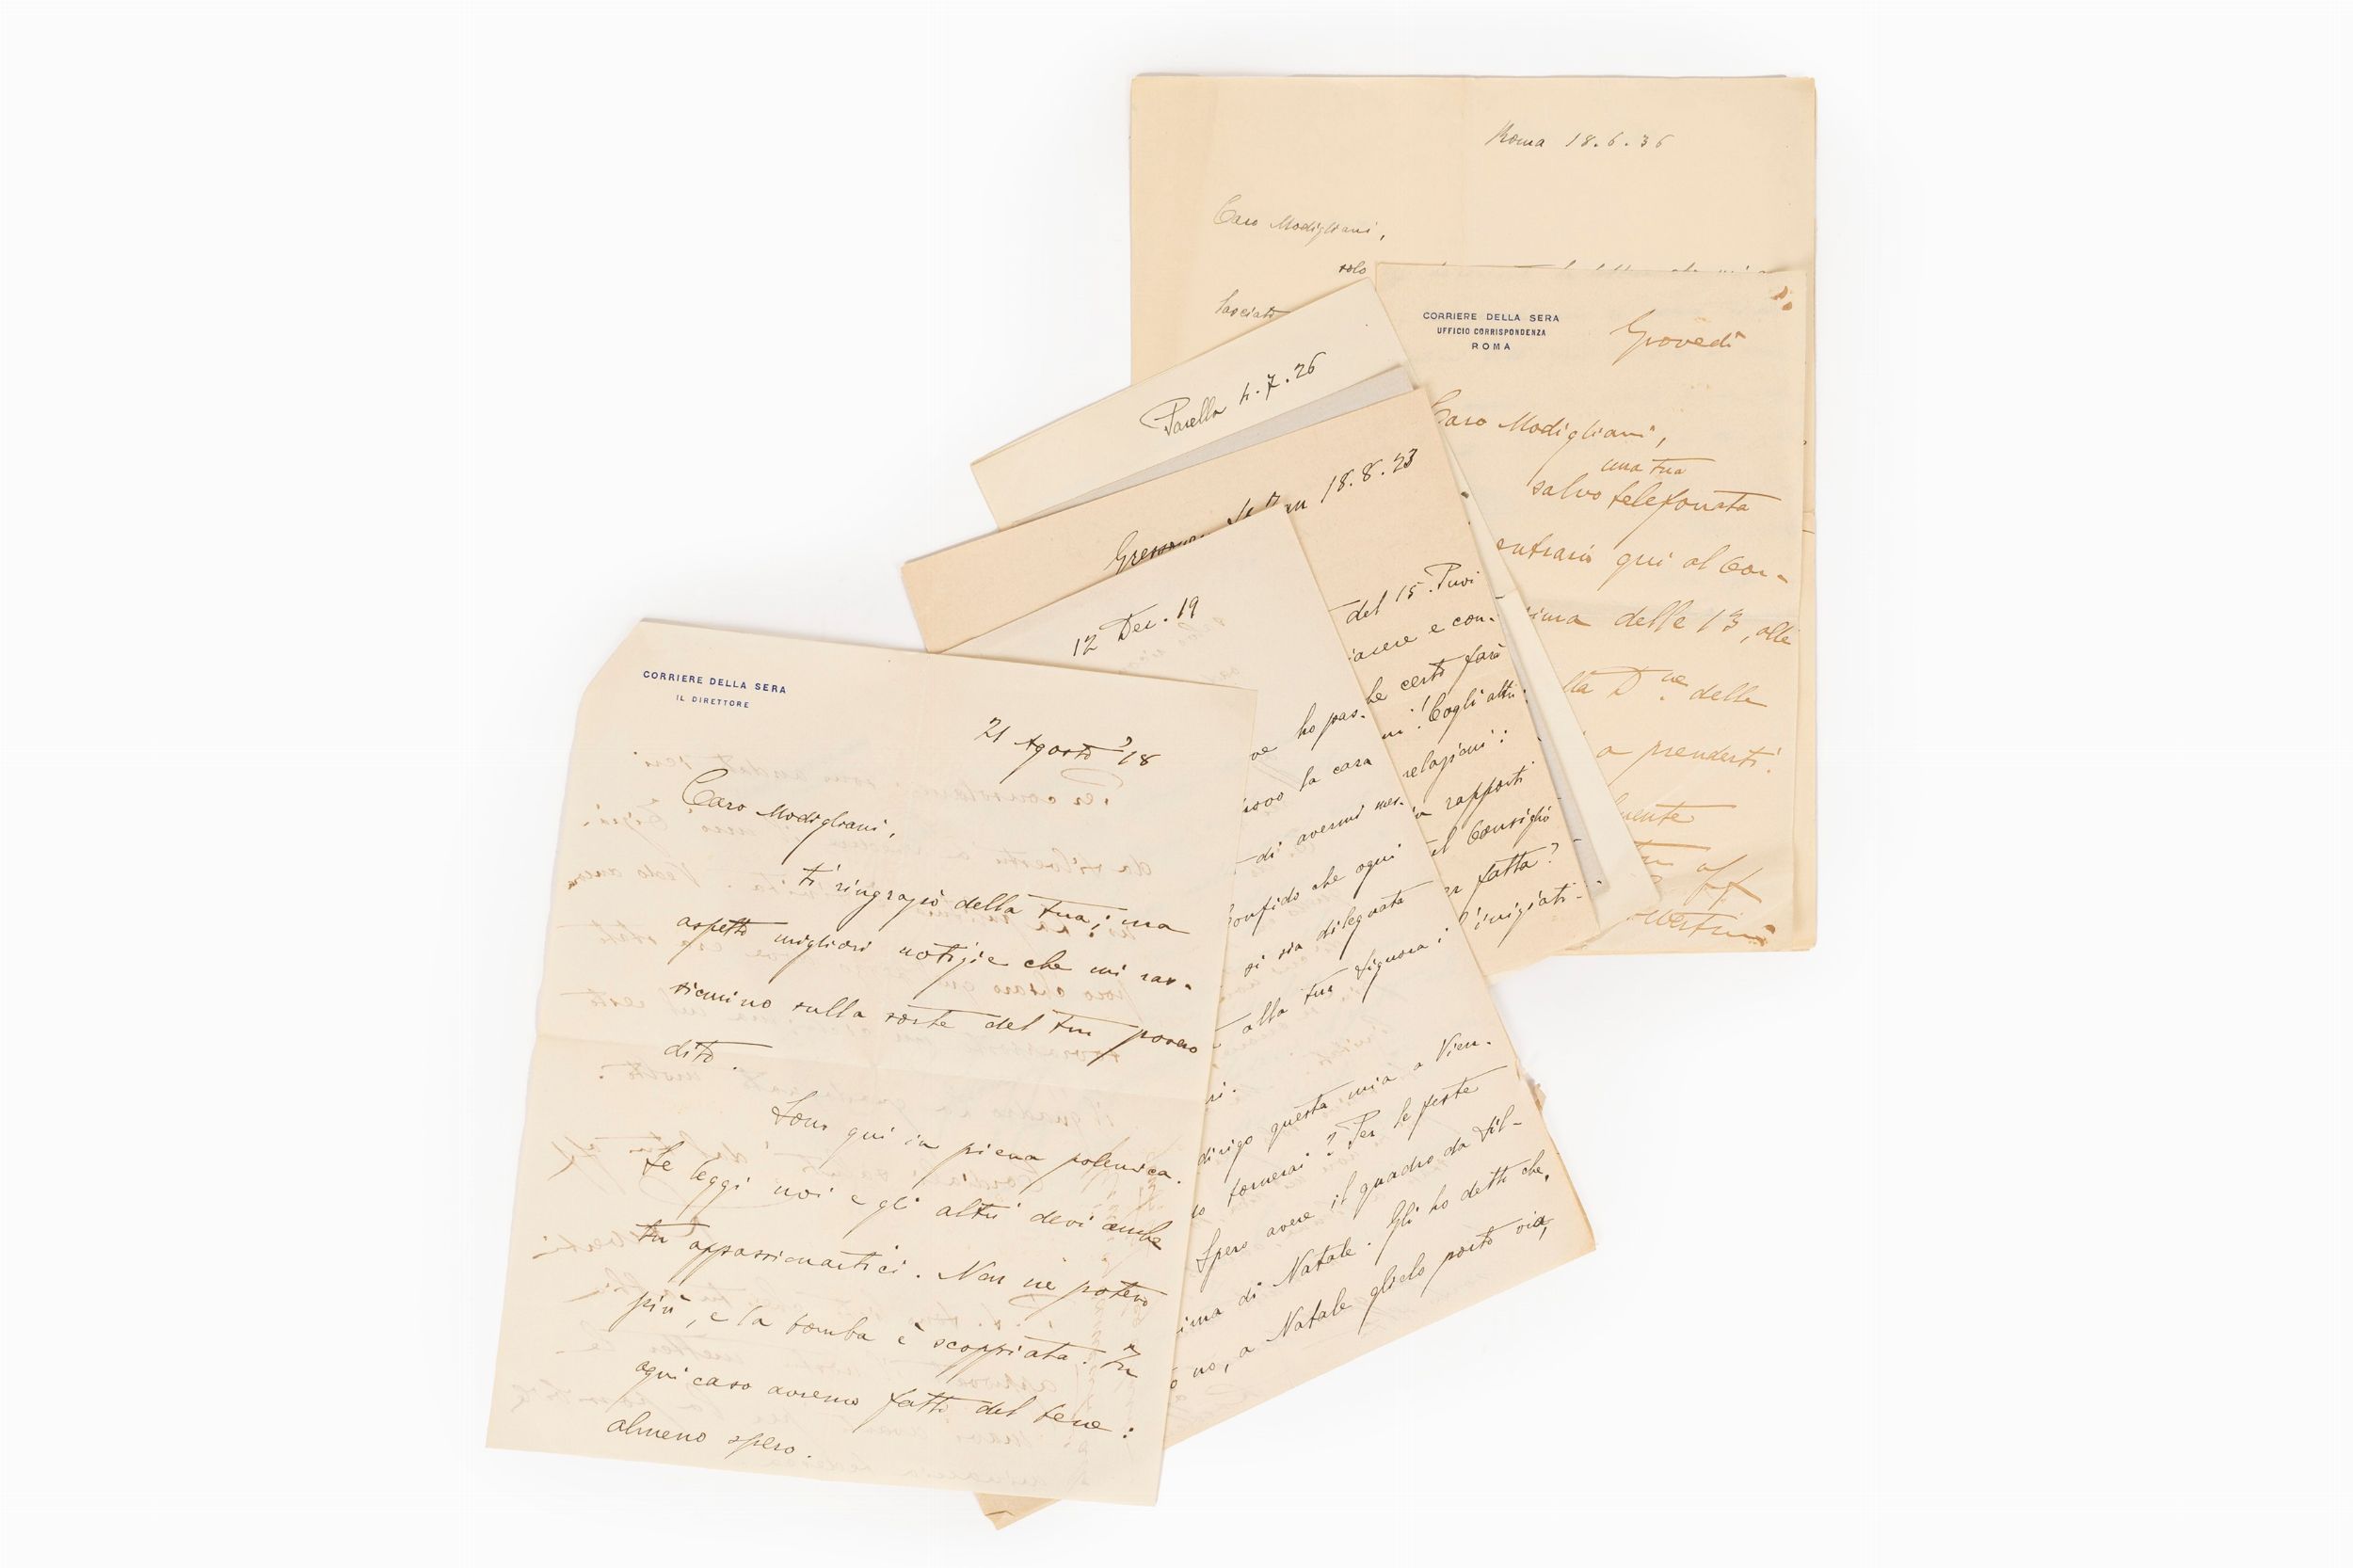 Roma 18.6.36
Caro Modigliani,
solo
lasciato
CORRIERE DELLA SERA
UFFICIO CORRISPONDENZA
ROMA
Giovedì
Caro Modigliani,
una tua
salvo telefonata
qui al Cor-
delle 13, alle
D.ne della
a prenderti.
aff
Parella 4.7.26
18.8.23
del 15. Puoi
e con-
certo farà
! Cogli altri
relazioni:
rapporti
il Consiglio
fatta?
12 Dec. 19
ho pas-
la casa
di avermi
confido che ogni
si sia dileguata
alla tua Signora;
dirigo questa mia a Vien-
tornerai? Per le feste
Spero avere il quadro da Sil-
di Natale. Gli ho detto che,
no, a Natale glielo porto via,
CORRIERE DELLA SERA
IL DIRETTORE
21 Agosto '18
Caro Modigliani,
ti ringrazio della tua; ma
aspetto migliori notizie che mi ras-
sicurino sulla sorte del tuo povero
dito.
Sono qui in piena polemica.
Se leggi noi e gli altri devi anche
tu appassionartici. Non ne potevo
più, e la bomba è scoppiata. In
ogni caso avremo fatto del bene:
almeno spero.